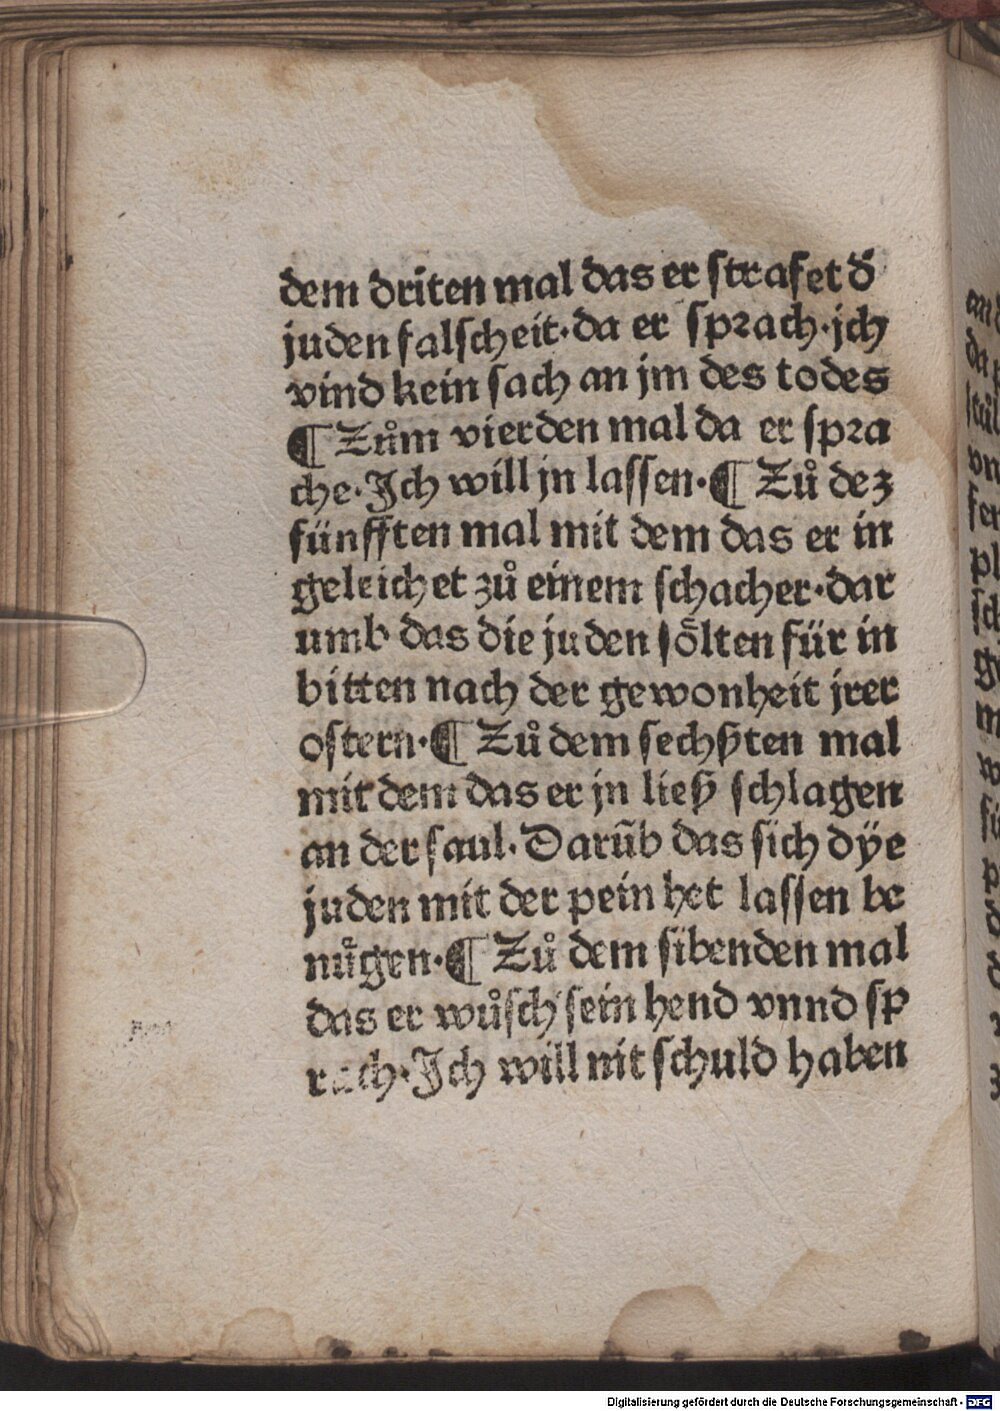 dem driten mal das er strafet d̾
juden falscheit·da er sprach·jch
vind kein sach an jm des todes
¶ Zům vierden mal da er spra
che·Jch will jn lassen·¶ Zů dez
fünfften mal mit dem das er in
geleichet zů einem schacher·dar
umb das die juden sölten für in
bitten nach der gewonheit jrer
ostern·¶ Zů dem sechßten mal
mit dem das er jn ließ schlagen
an der saul·Darūb das sich dÿe
juden mit der pein het lassen be
nůgen·¶ Zů dem sibenden mal
das er wůsch sein hend vnnd sp
rach·Jch will nit schuld haben
Digitalisierung gefördert durch die Deutsche Forschungsgemeinschaft - DFG